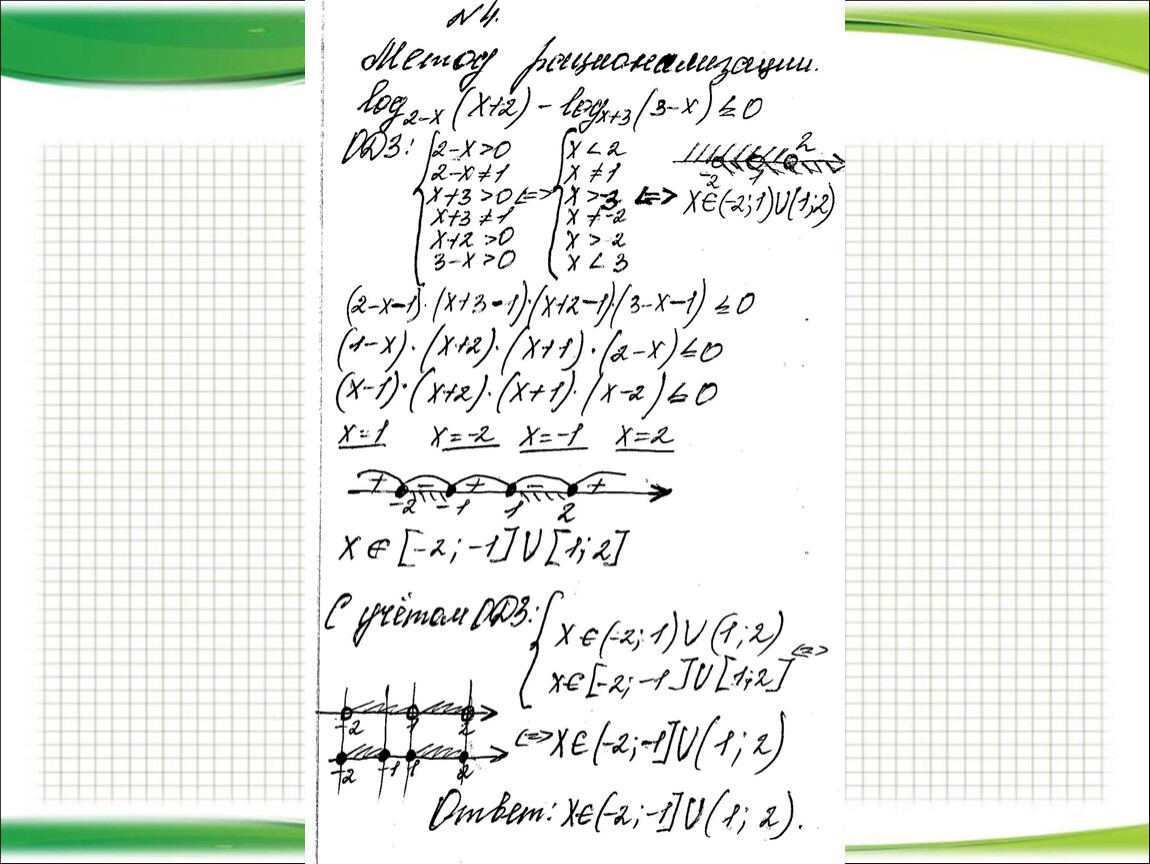 N4.
Метод рационализации.
log₂₋ₓ(x+2) - logₓ₊₃(3-x) ≤ 0
ОДЗ: { 2-x>0 { x<2 2
2-x≠1 x≠1 -2 1
x+3>0 <=> x>-3 <=> x∈(-2;1)∪(1;2)
x+3≠1 x≠-2
x+2>0 x>-2
3-x>0 x<3
(2-x-1)·(x+3-1)·(x+2-1)·(3-x-1) ≤ 0
(1-x)·(x+2)·(x+1)·(2-x) ≤ 0
(x-1)·(x+2)·(x+1)·(x-2) ≤ 0
x=1 x=-2 x=-1 x=2
+ - + - +
-2 -1 1 2
x∈[-2;-1]∪[1;2]
С учётом ОДЗ: { x∈(-2;1)∪(1;2) <=>
x∈[-2;-1]∪[1;2]
-2 1 2
<=> x∈(-2;-1]∪(1;2)
-2 -1 1 2
Ответ: x∈(-2;-1]∪(1;2).